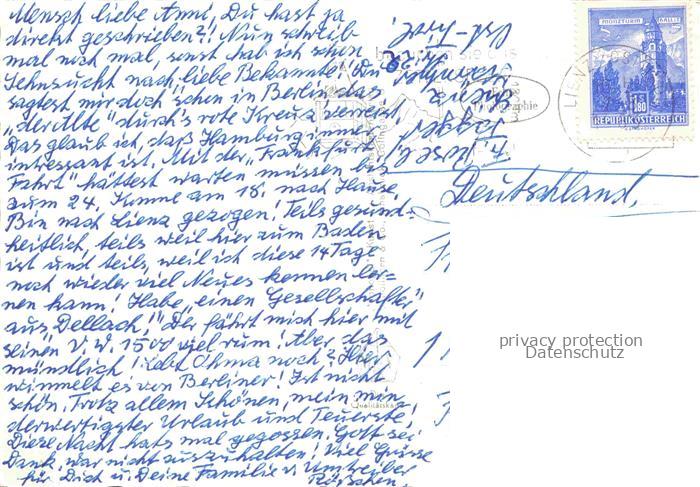 Mensch liebe Anni, Du hast ja
direkt geschrieben?! Nun schreib
mal noch mal, sonst hab ich schon
Sehnsucht nach "liebe Bekannte" Du
sagtest mir doch schon in Berlin, das
durch's rote Kreuz verreist
Das glaub ich, daß Hamburg immer
interessant ist. Mit der "Frankfurt
Fahrt" hättest warten müssen bis
zum 24. Komme am 18. nach Hause
Bin nach Lienz gezogen! Teils gesund-
heitlich, teils weil hier zum Baden
ist und teils, weil ich diese 14 Tage
noch wieder viel Neues kennen ler-
nen kann! Habe "einen Gesellschafter"
aus Dellach! Der fährt mich hier mit
seinen V.W. 1500 viel rum! Aber das
mündlich! Lebt Ohma noch? Hier
wimmelt es von Berliner! Ist nicht
schön. Trotz allem Schönen, mein min
derwertigster Urlaub und Teuerste!
Diese Nacht hats mal gegossen. Gott sei
Dank, war nicht auszuhalten! Viel Grüsse
für Dich u. Deine Familie v. Umtreiber
Röschen
Deutschland.
MÜNZTURM
HALL I. T.
1.80
REPUBLIK ÖSTERREICH
LIENZ
privacy protection
Datenschutz